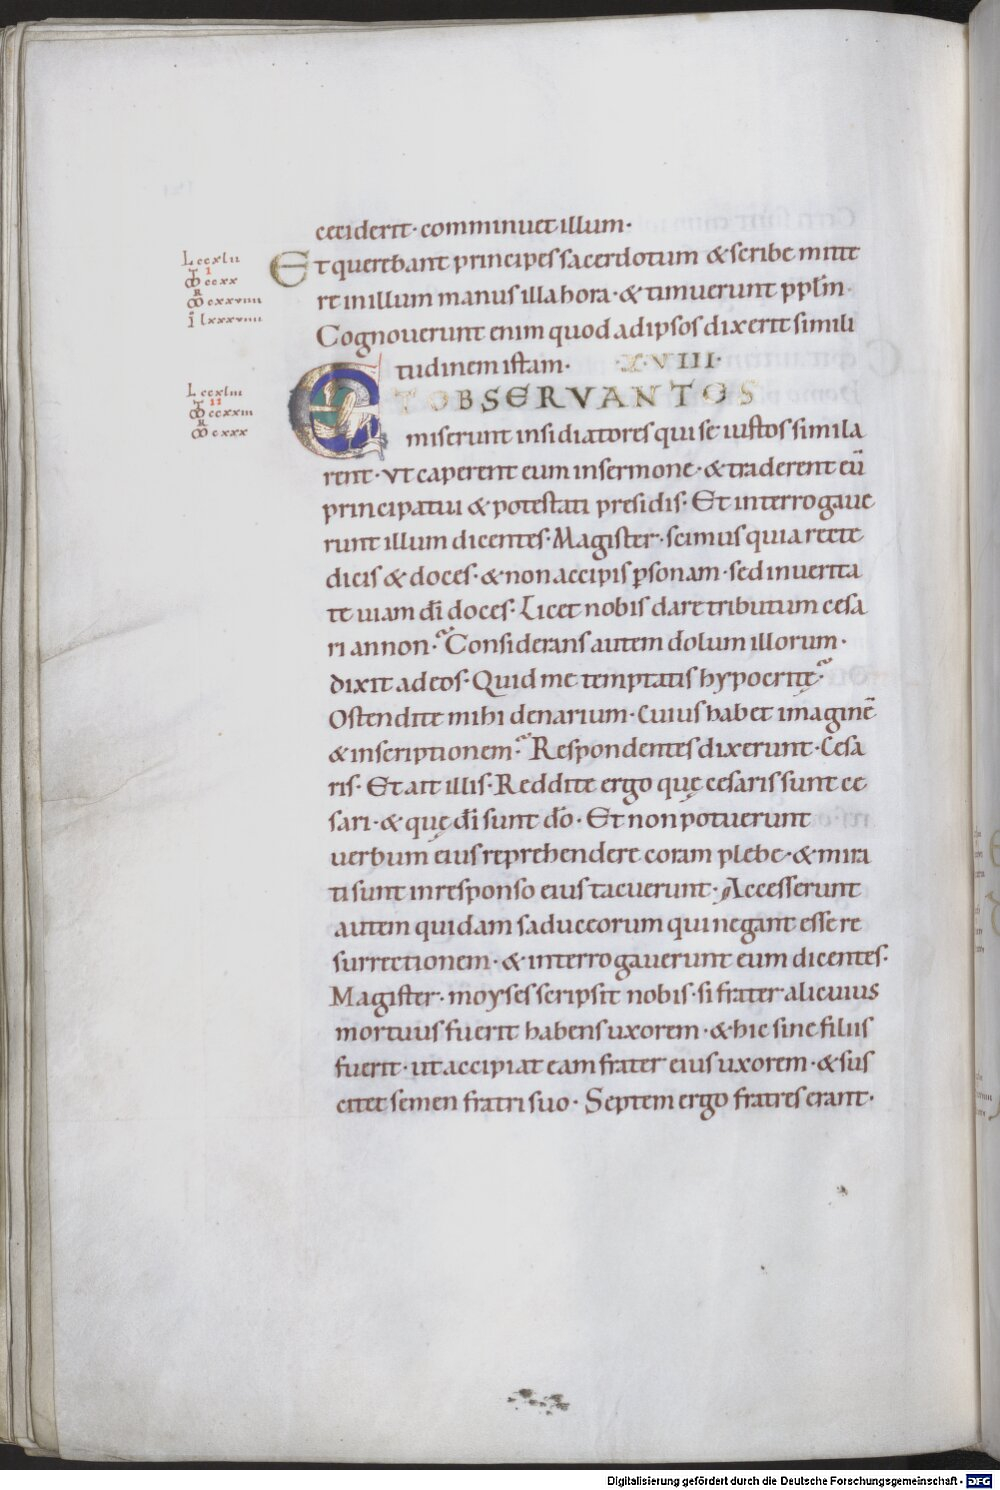 ceciderit· comminuet illum·
L ccxlii
Et querebant principes sacerdotum & scribe mitte
I
ccxx
re in illum manus illa hora· & timuerunt pplm̄·
R
cxxviiii
ī lxxxviiii
Cognouerunt enim quod ad ipsos dixerit simili
tudinem istam· X·VIII·
L ccxliii
II
ccxxiii
R
cxxx
ET OBSERVANTOS
miserunt insidiatores qui se iustos simila
rent· vt caperent eum in sermone· & traderent eū
principatui & potestati presidis· Et interrogaue
runt illum dicentes· Magister· scimus quia recte
dicis & doces· & non accipis p̱sonam· sed in uerita
te uiam dī doces· Licet nobis dare tributum cesa
ri an non? Considerans autem dolum illorum·
dixit ad eos· Quid me temptatis hypocritę?
Ostendite mihi denarium· Cuius habet imaginē
& inscriptionem? Respondentes dixerunt· Cesa
ris· Et ait illis· Reddite ergo quę cesaris sunt ce
sari· & quę dī sunt dō· Et non potuerunt
uerbum eius reprehendere coram plebe· & mira
ti sunt in responso eius tacuerunt· Accesserunt
autem quidam saduceorum qui negant esse re
surrectionem· & interrogauerunt eum dicentes·
Magister· moyses scripsit nobis· si frater alicuius
mortuus fuerit habens uxorem· & hic sine filiis
fuerit· ut accipiat eam frater eius uxorem· & sus
citet semen fratri suo· Septem ergo fratres erant·
Digitalisierung gefördert durch die Deutsche Forschungsgemeinschaft - DFG